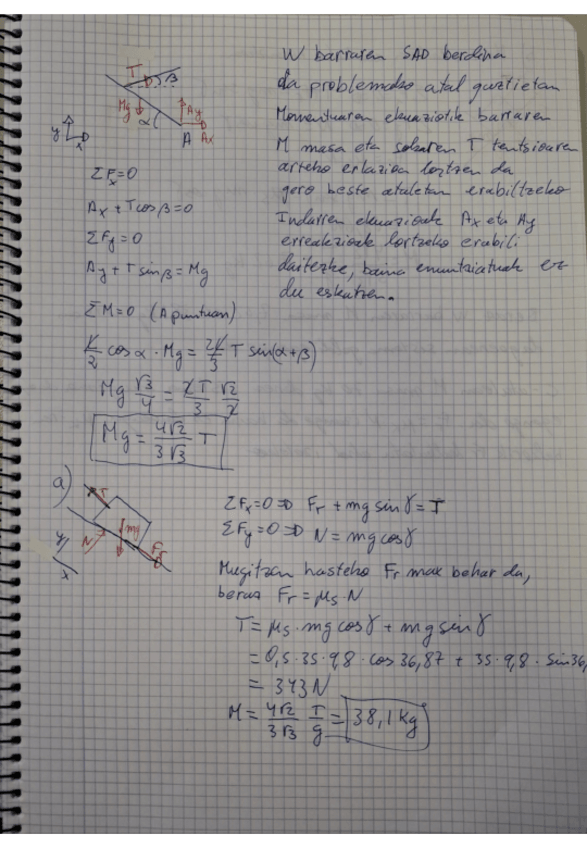 T
β
Mg
α
Ay
A
Ax
y
x
W barraren SAD berdina
da problemako atal guztietan
Momentuaren ekuaziotik barraren
M masa eta sokaren T tentsioaren
arteko erlazioa lortzen da
gero beste ataletan erabiltzeko
Indarren ekuazioak Ax eta Ay
erreakzioak lortzeko erabili
daitezke, baina enuntziatuak ez
du eskatzen.
ΣFx=0
Ax + T cos β = 0
ΣFy = 0
Ay + T sin β = Mg
ΣM=0 (A puntuan)
L/2 cos α · Mg = 2L/3 T sin(α+β)
Mg √3/4 = 2T/3 √2/2
Mg = 4√2/3√3 T
a)
T
mg
N
Fr
y
x
ΣFx=0 ⇒ Fr + mg sin γ = T
ΣFy=0 ⇒ N = mg cos γ
Mugitzen hasteko Fr max behar da,
beraz Fr = μs · N
T = μs · mg cos γ + mg sin γ
= 0,5 · 35 · 9,8 · cos 36,87 + 35 · 9,8 · sin 36,
= 343 N
M = 4√2/3√3 T/g = 38,1 kg